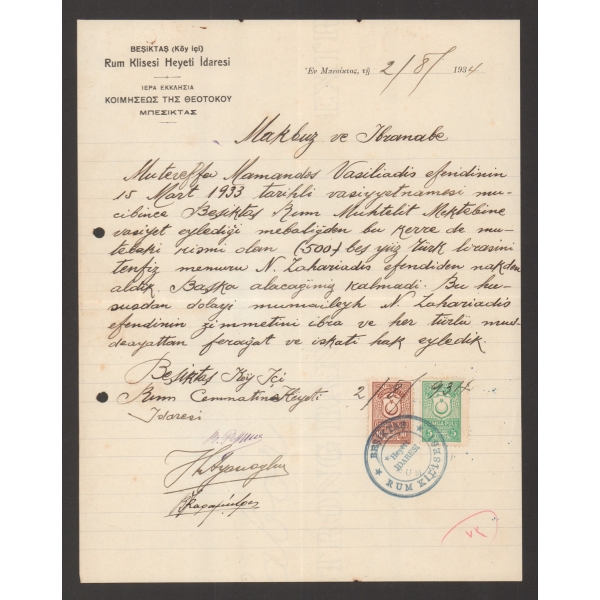 BEŞİKTAŞ (Köy içi)
Rum Klisesi Heyeti İdaresi
ΙΕΡΑ ΕΚΚΛΗΣΙΑ
ΚΟΙΜΗΣΕΩΣ ΤΗΣ ΘΕΟΤΟΚΟΥ
ΜΠΕΣΙΚΤΑΣ
Ἐν Μπεσίκτας, τῇ 2/8/ 1934
Makbuz ve Ibranabe
Muteveffa Mamandos Vasiliadis efendinin
15 Mart 1933 tarihli vasiyyetnamesi mu-
cibince Beşiktaş Rum Muhtelit Mektebine
vasiyet eylediği mebaliğden bu kerre de mu-
tebaki kismi olan (500) beş yüz türk lirasini
tenfiz memuru N. Zahariadis efendiden nakden
aldik. Başka alacağimiz kalmadi. Bu hu-
susdan dolayi mumaileyh N. Zahariadis
efendinin zimmetini ibra ve her türlü mud-
deayattan feragat ve iskati hak eyledik.
Beşiktaş Köy Içi
Rum Cemaatine Heyeti
Idaresi
2/8/934
DAMGA PULU
5
BEŞİKTAŞ
Heyeti
IDARESI
RUM KİLİSESİ
٧٢